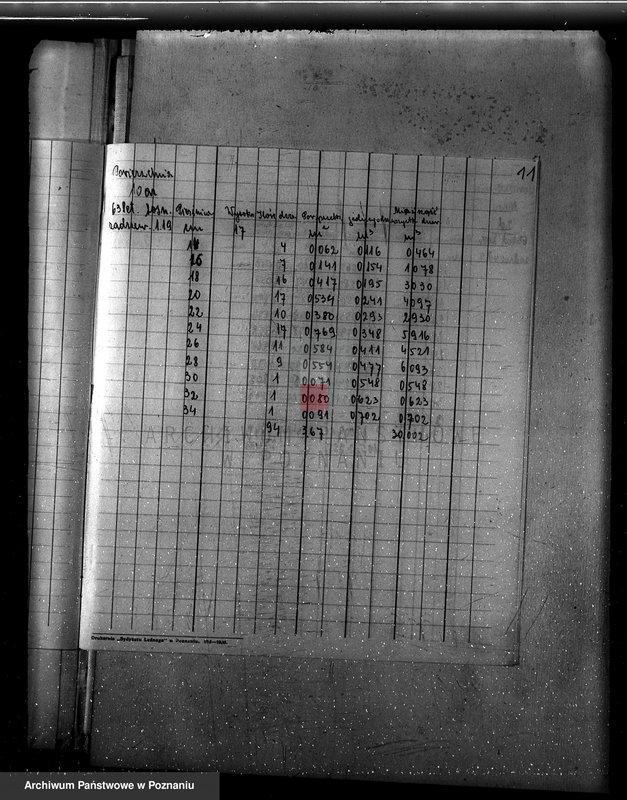 11
Powierzchnia
10 ar
63 let. sosn. Średnica Wysoko Ilość drzew Pow. przekr. jednego drz. Miąższość wszystk. drzew
zadrzew. 1.19 cm 17 m² m³ m³
4 0062 0116 0464
16 7 0141 0154 1078
18 16 0417 0195 3030
20 17 0534 0241 4097
22 10 0380 0293 2930
24 17 0769 0348 5916
26 11 0584 0411 4521
28 9 0554 0477 6093
30 1 0071 0548 0548
32 1 0080 0623 0623
34 1 0091 0702 0702
94 367 30002
ARCHIWUM PAŃSTWOWE
W POZNANIU
Drukarnia „Dziedzictwo
Archiwum Państwowe w Poznaniu